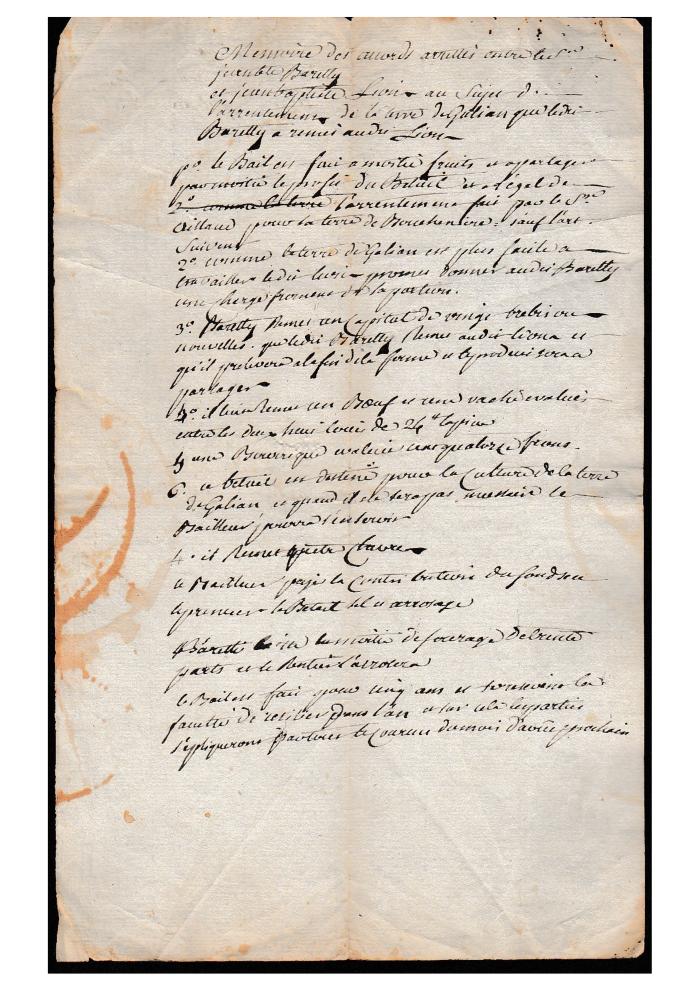 Memoire des acords arrettés entre le Sr
Baretty
et jean baptiste Lion au Sujet de
l'arrentement de la terre de Galian que ledit
Baretty a remis audit Lion
po. le Bail est fait a moitié fruits et a partager
par moitié le profit du Betail et a l'égal de
2o. comme la terre l'arrentement fait par le Sr
pour la terre de sauf l'art.
Suivent
2o comme la terre de Galian est plus facile a
travailler ledit Lion promet donner audit Baretty
une charge froment de la portion.
3o. Baretty Remet un Capital de vingt brebis ou
nouvelles. que ledit Baretty Remet audit Liona et
qu'il prelevera a la fin de la ferme et le produit sera a
partager
4o. il lui a Remis un Bœuf et une vache evalués
entre les deux huit louis de 24 tt la piece
5 une Bourrique evaluée cinq quatorze francs
6. ce betail est destiné pour la Culture de la terre
de Galian et quand il ne sera pas necessaire le
Bailleur pourra s'en servir
il Remet quatre
le Bailleur paye la Contribution du fond
le preneur le Betail sel et arrosage
Baretti la moitié de fourage de trente
parts et le Rentier l'arrosera
le Bail est fait pour cinq ans et se reservent la
faculté de resilier dans l'an et sur cela les parties
s'expliqueront dans tout le Courant du mois d'avril prochain